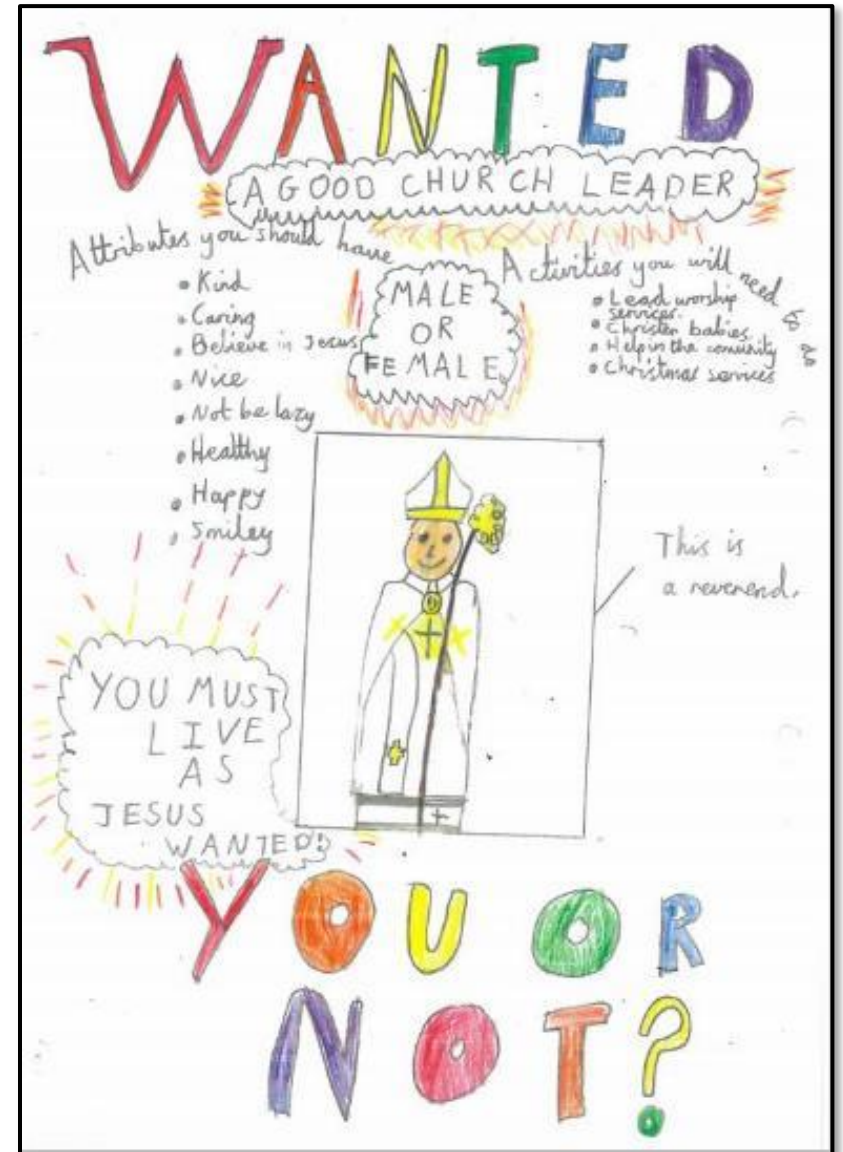 WANTED
A GOOD CHURCH LEADER
Attributes you should have
• Kind
• Caring
• Believe in Jesus
• Nice
• Not be lazy
• Healthy
• Happy
• Smiley
MALE
OR
FEMALE
Activities you will need to do
• Lead worship
services.
• Christen babies
• Help in the comunity
• Christmas services
This is
a reverend.
YOU MUST
LIVE
AS
JESUS
WANTED!
YOU OR
NOT?